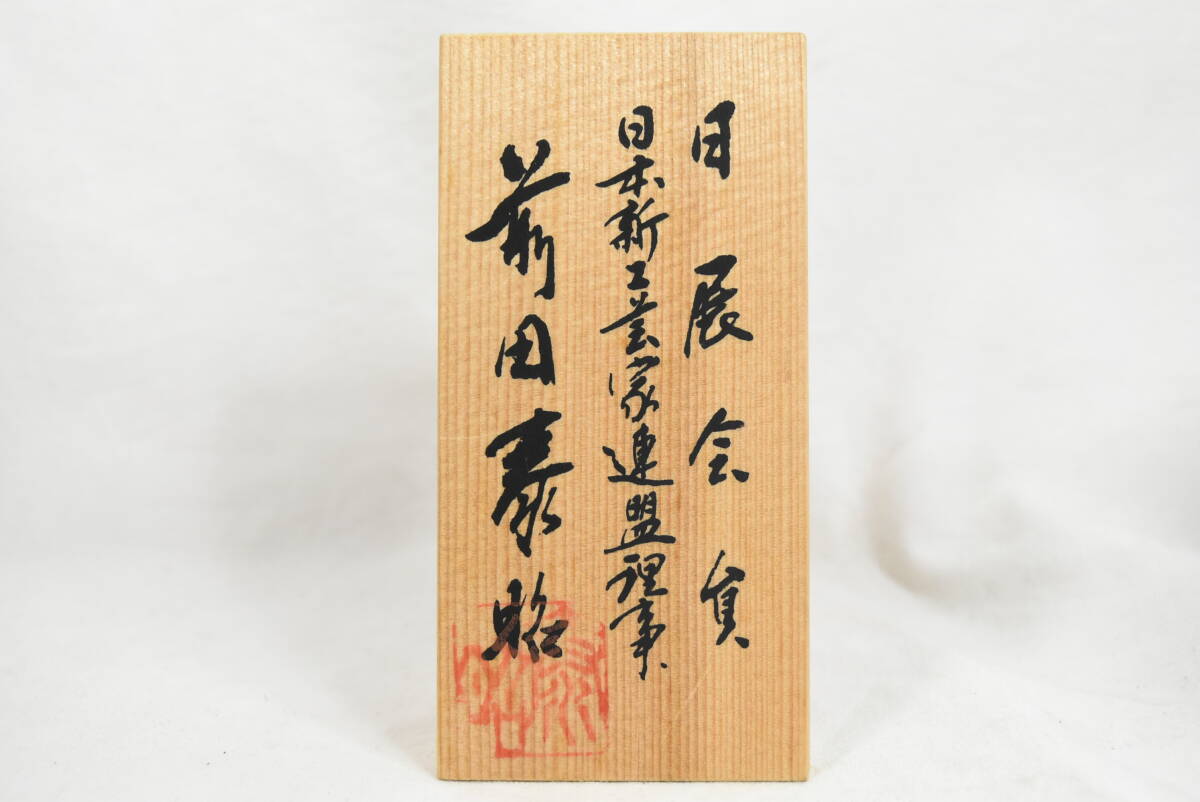 日展会員
日本新工芸家連盟理事
前田泰昭